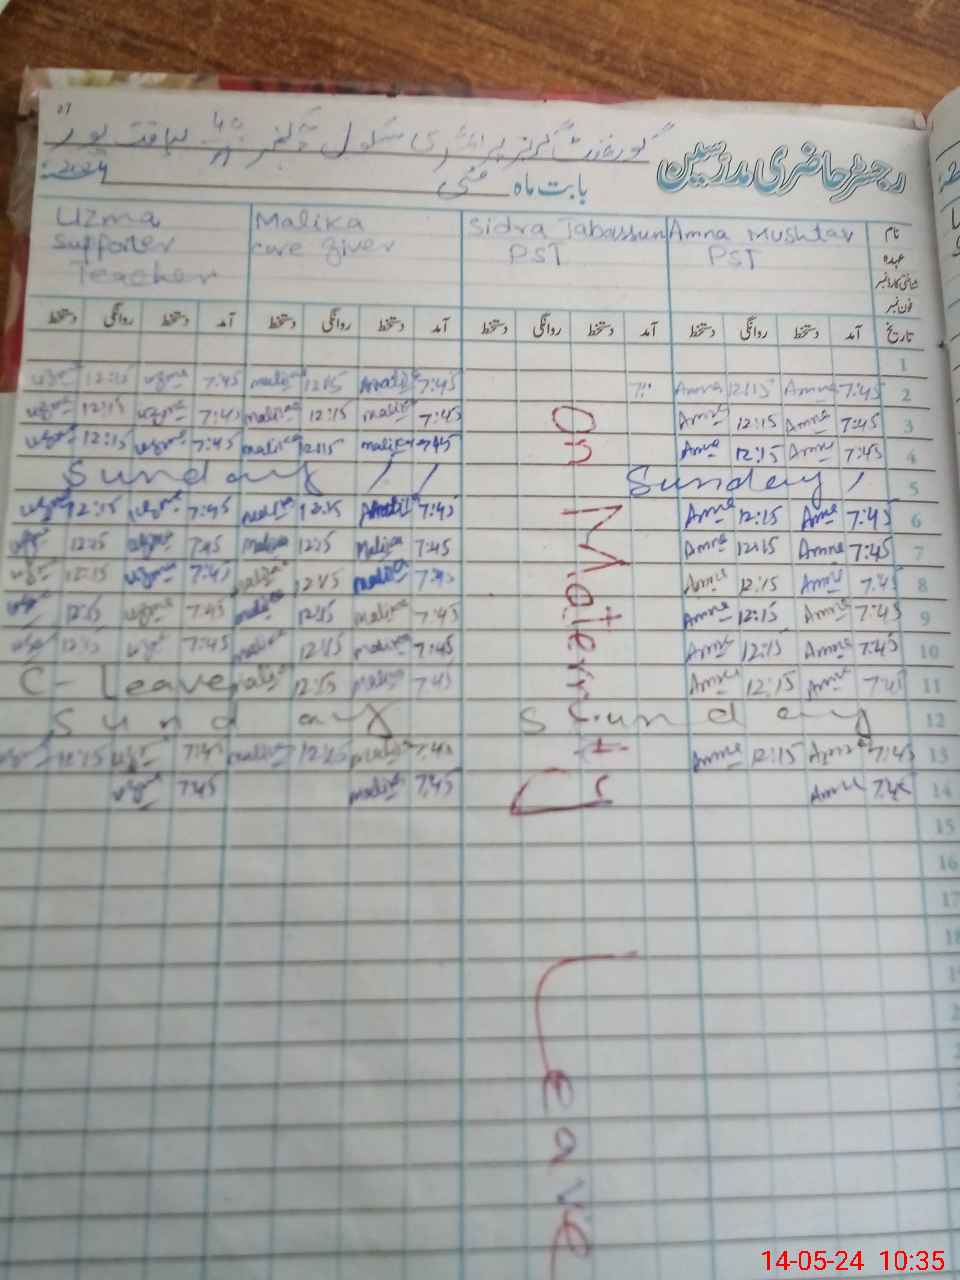 27
رجسٹر حاضری مدرسین
گورنمنٹ گرلز پرائمری سکول
بابت ماہ مئی 2024ء
نام Amna Mushtar Sidra Tabassum Malika Uzma
عہدہ PST PST care giver supporter
Teacher
شناختی کارڈ نمبر
فون نمبر
تاریخ آمد دستخط روانگی دستخط آمد دستخط روانگی دستخط آمد دستخط روانگی دستخط آمد دستخط روانگی دستخط
1
2 7:45 Amna 12:15 Amna 7:45 Malika 12:15 malika 7:45 uzma 12:15 uzma
3 7:45 Amna 12:15 Amna 7:45 malika 12:15 malika 7:45 uzma 12:15 uzma
4 7:45 Amna 12:15 Amna 7:45 malika 12:15 malika 7:45 uzma 12:15 uzma
5 Sunday Sunday
6 7:45 Amna 12:15 Amna 7:45 Malika 12:15 malika 7:45 uzma 12:15 uzma
7 7:45 Amna 12:15 Amna 7:45 Malika 12:15 Malika 7:45 uzma 12:15 uzma
8 7:45 Amna 12:15 Amna 7:45 malika 12:15 malika 7:45 uzma 12:15 uzma
9 7:45 Amna 12:15 Amna 7:45 malika 12:15 malika 7:45 uzma 12:15 uzma
10 7:45 Amna 12:15 Amna 7:45 malika 12:15 malika 7:45 uzma 12:15 uzma
11 7:45 Amna 12:15 Amna 7:45 malika 12:15 malika C-Leave
12 Sunday Sunday
13 7:45 Amna 12:15 Amna 7:45 malika 12:15 malika 7:45 uzma 12:15 uzma
14 7:45 Amna 7:45 malika 7:45 uzma
15
16
17
18
On Maternity Leave
14-05-24 10:35